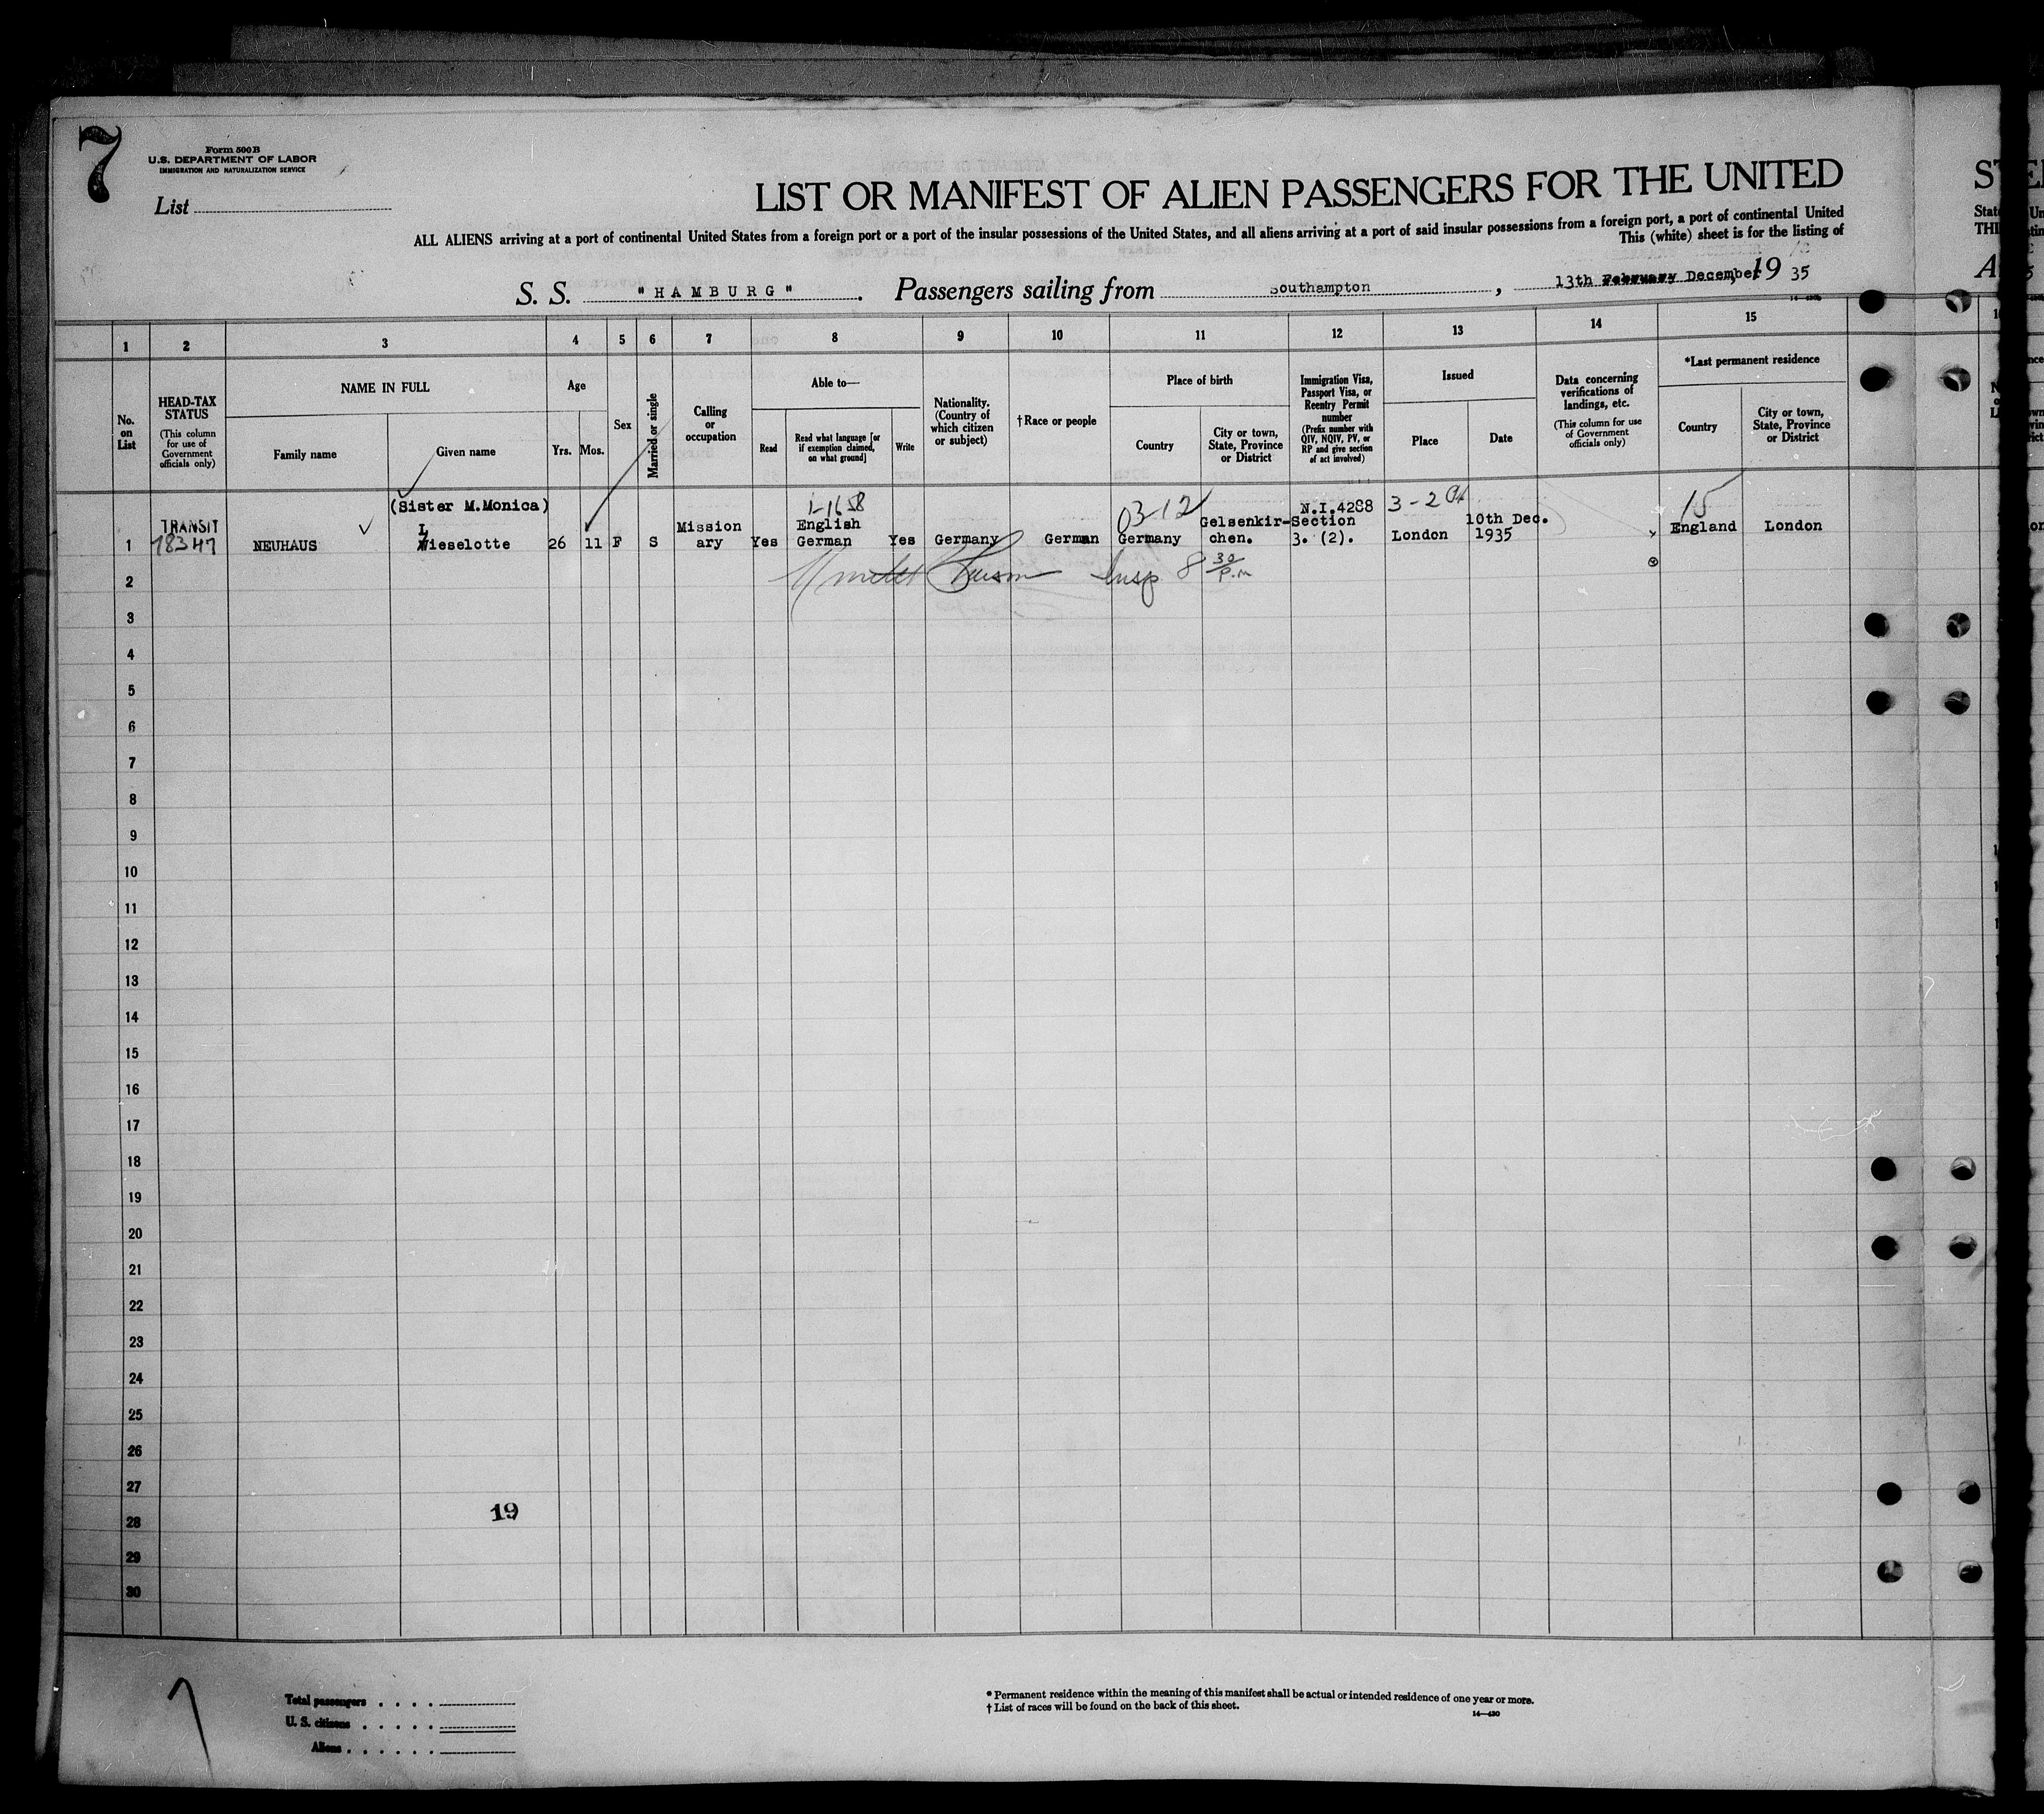 7
Form 500 B
U.S. DEPARTMENT OF LABOR
IMMIGRATION AND NATURALIZATION SERVICE
List
LIST OR MANIFEST OF ALIEN PASSENGERS FOR THE UNITED
ALL ALIENS arriving at a port of continental United States from a foreign port or a port of the insular possessions of the United States, and all aliens arriving at a port of said insular possessions from a foreign port, a port of continental United
This (white) sheet is for the listing of
S. S. "HAMBURG". Passengers sailing from Southampton, 13th February December, 19 35
1 2 3 4 5 6 7 8 9 10 11 12 13 14 15
No. on List
HEAD-TAX STATUS
(This column for use of Government officials only)
NAME IN FULL
Family name
Given name
Age
Yrs.
Mos.
Sex
Married or single
Calling or occupation
Able to—
Read
Read what language [or if exemption claimed, on what ground]
Write
Nationality. (Country of which citizen or subject)
† Race or people
Place of birth
Country
City or town, State, Province or District
Immigration Visa, Passport Visa, or Reentry Permit number
(Prefix number with QIV, NQIV, PV, or RP and give section of act involved)
Issued
Place
Date
Data concerning verifications of landings, etc.
(This column for use of Government officials only)
*Last permanent residence
Country
City or town, State, Province or District
(Sister M.Monica) 1-1658 03-12 N.I.4288 3-2 15
TRANSIT L Mission English Gelsenkir- Section 10th Dec. England London
1 18347 NEUHAUS ieselotte 26 11 F S ary Yes German Yes Germany German Germany chen. 3. (2). London 1935
2 Insp 8 30 P.m
3
4
5
6
7
8
9
10
11
12
13
14
15
16
17
18
19
20
21
22
23
24
25
26
27
19
28
29
30
Total passengers
U. S. citizens
Aliens
* Permanent residence within the meaning of this manifest shall be actual or intended residence of one year or more.
† List of races will be found on the back of this sheet.
14—430